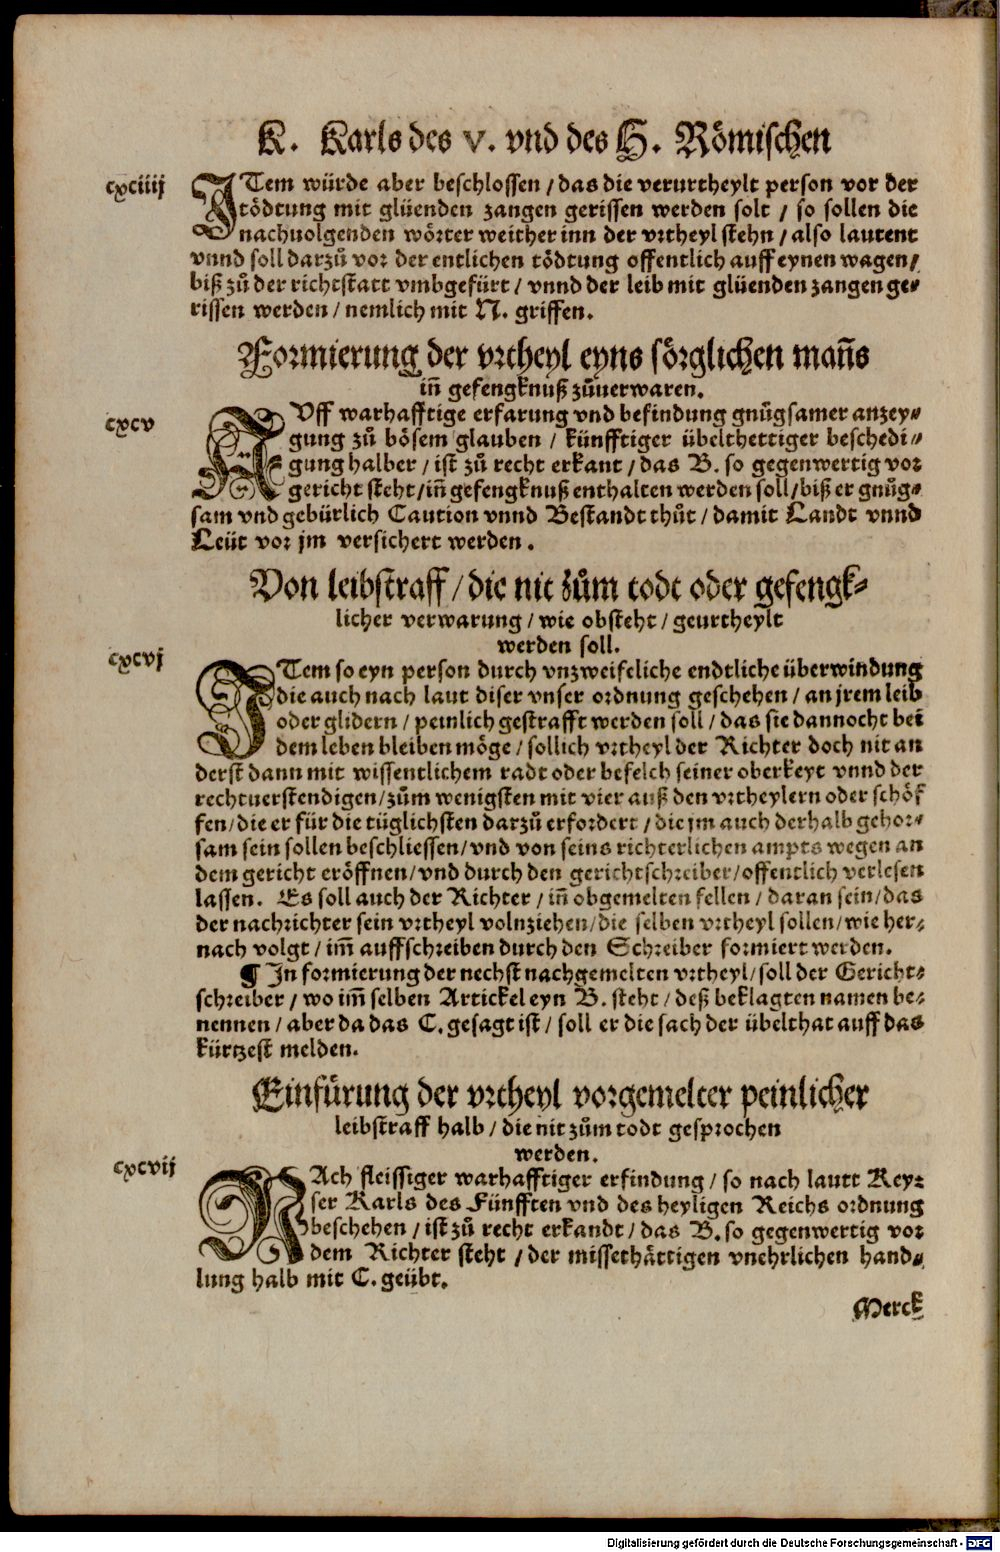 K. Karls des V. vnd des H. Römischen
cxciiij
ITem würde aber beschlossen / das die verurtheylt person vor der
tödtung mit glüenden zangen gerissen werden solt / so sollen die
nachuolgenden wörter weither inn der vrtheyl stehn / also lautent
vnnd soll darzů vor der entlichen tödtung offentlich auff eynen wagen /
biß zů der richtstatt vmbgefürt / vnnd der leib mit glüenden zangen ge-
rissen werden / nemlich mit N. griffen.
Formierung der vrtheyl eyns sörglichen mañs
iñ gefengknuß zůuerwaren.
cxcv
AVff warhafftige erfarung vnd befindung gnůgsamer anzey-
gung zů bösem glauben / künfftiger übelthettiger beschedi-
gung halber / ist zů recht erkant / das B. so gegenwertig vor
gericht steht / iñ gefengknuß enthalten werden soll / biß er gnůg-
sam vnd gebürlich Caution vnnd Bestandt thůt / damit Landt vnnd
Leüt vor jm versichert werden.
Von leibstraff / die nit zům todt oder gefengk-
licher verwarung / wie obsteht / geurtheylt
werden soll.
cxcvj
ITem so eyn person durch vnzweifeliche endtliche überwindung
die auch nach laut diser vnser ordnung geschehen / an jrem leib
oder glidern / peinlich gestrafft werden soll / das sie dannocht bei
dem leben bleiben möge / sollich vrtheyl der Richter doch nit an
derst dann mit wissentlichem radt oder befelch seiner oberkeyt vnnd der
rechtuerstendigen / zům wenigsten mit vier auß den vrtheylern oder schöf
fen / die er für die tüglichsten darzů erfordert / die jm auch derhalb gehor-
sam sein sollen beschliessen / vnd von seins richterlichen ampts wegen an
dem gericht eröffnen / vnd durch den gerichtschreiber / offentlich verlesen
lassen. Es soll auch der Richter / iñ obgemelten fellen / daran sein / das
der nachrichter sein vrtheyl volnziehen / die selben vrtheyl sollen / wie her-
nach volgt / im̃ auffschreiben durch den Schreiber formiert werden.
¶ In formierung der nechst nachgemelten vrtheyl / soll der Gericht-
schreiber / wo im̃ selben Artickel eyn B. steht / deß beklagten namen be-
nennen / aber da das C. gesagt ist / soll er die sach der übelthat auff das
kürtzest melden.
Einfürung der vrtheyl vorgemelter peinlicher
leibstraff halb / die nit zům todt gesprochen
werden.
cxcvij
NAch fleissiger warhafftiger erfindung / so nach lautt Key-
ser Karls des Fünfften vnd des heyligen Reichs ordnung
beschehen / ist zů recht erkandt / das B. so gegenwertig vor
dem Richter steht / der missethättigen vnehrlichen hand-
lung halb mit C. geübt.
Merck
Digitalisierung gefördert durch die Deutsche Forschungsgemeinschaft - DFG